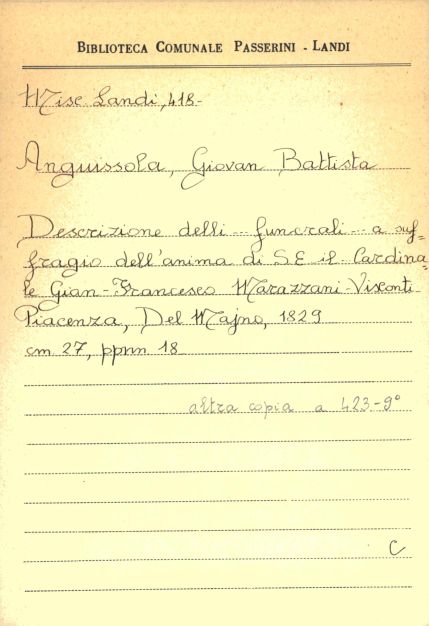 BIBLIOTECA COMUNALE PASSERINI - LANDI
Misc. Landi, 418-
Anguissola, Giovan Battista
Descrizione delli ... funerali ... a suf=
fragio dell'anima di S.E il Cardina=
le Gian-Francesco Marazzani-Visconti
Piacenza, Del Majno, 1829
cm 27, ppnn 18
altra copia a 423-9°
C